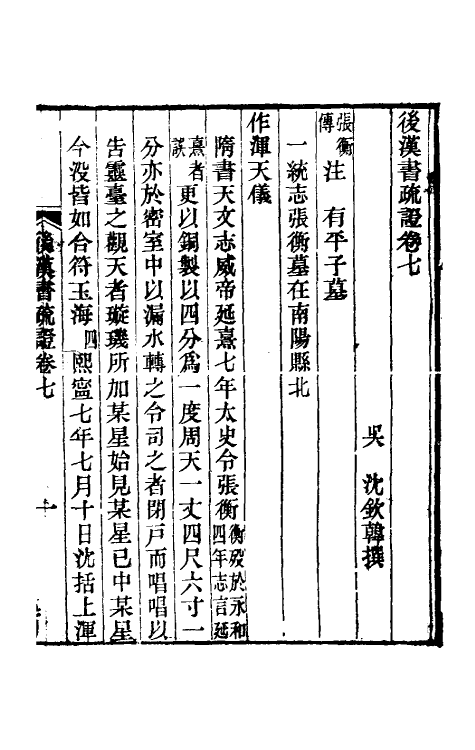 後漢書疏證卷七
吳　沈欽韓撰
張衡傳　注　有平子墓
一統志張衡墓在南陽縣北
作渾天儀
隋書天文志威帝延熹七年太史令張衡衡歿於永和四年志言延
熹者誤更以銅製以四分爲一度周天一丈四尺六寸一
分亦於密室中以漏水轉之令司之者閉戸而唱唱以
告靈臺之觀天者璇璣所加某星始見某星已中某星
今沒皆如合符玉海四熙寧七年七月十日沈括上渾
後漢書疏證卷七　一